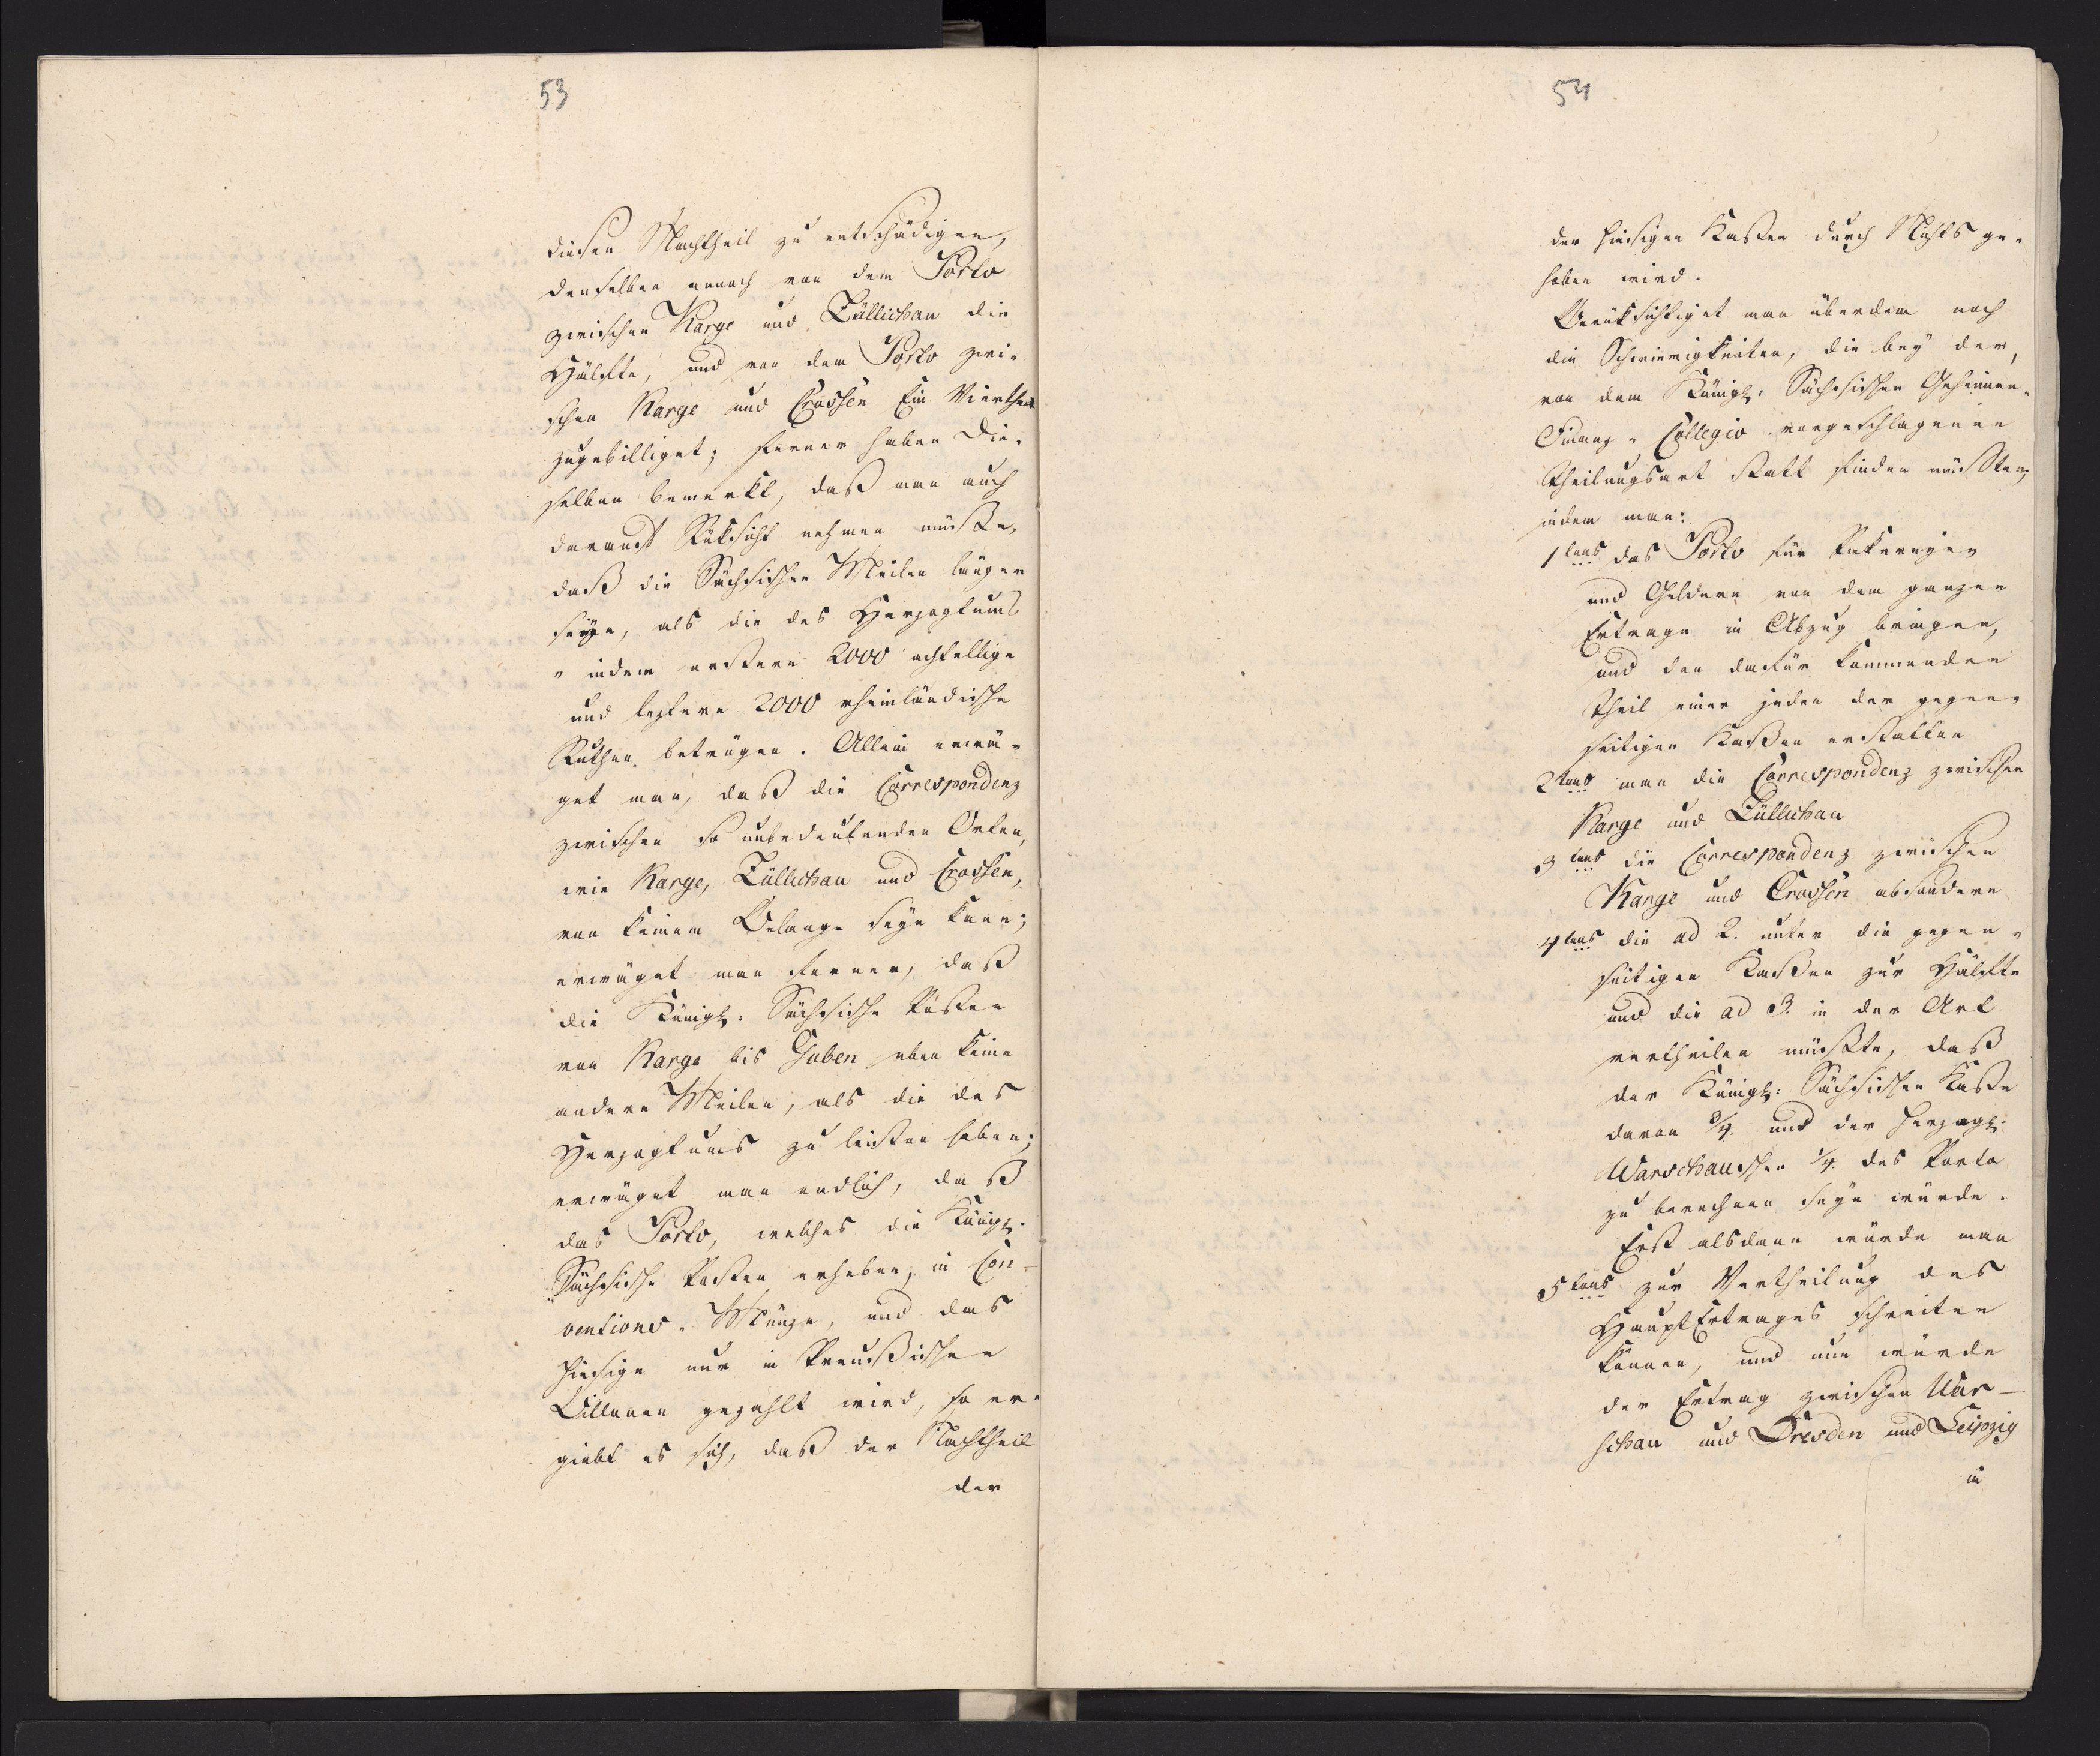 53
diesen Nachtheil zu entschädigen,
denselben annoch von dem Porto
zwischen Karge und Züllichau die
Hälfte, und von dem Porto zwi-
schen Karge und Crossen Ein Viertheil
zugebilliget; ferner haben Die-
selben bemerkt, daß man auch
darauf Rüksicht nehmen müße,
daß die Sächsischen Meilen länger
seyen, als die des Herzogtums
" indem erstere 2000 achtellige
und leztere 2000 rheinländische
Ruthen betrügen. Allein erwä-
get man, daß die Correspondenz
zwischen so unbedeutenden Orten,
wie Karge, Züllichau und Crossen,
von keinem Belange seyn kann;
erwäget man ferner, daß
die Königl: Sächsische Posten
von Karge bis Guben eben keine
andere Meilen, als die des
Herzogtums zu leisten haben;
erwäget man endlich, daß
das Porto, welches die Königl:
Sächsische Posten erheben, in Con-
ventions-Münze, und das
hiesige nur in Preußischen
Billonen gezahlt wird, so er-
giebt es sich, daß der Nachtheil
der
54
der hiesigen Kassen durch Nichts ge-
hoben wird.
Berüksichtiget man überdem noch
die Schwierigkeiten, die bey der,
von dem Königl: Sächsischen Geheimen-
Finanz-Collegio vorgeschlagenen
Theilungsart statt finden müssten,
indem man:
1tens das Porto für Päkereyen
und Geldern von dem ganzen
Ertrage in Abzug bringen,
und den dafür kommenden
Theil einer jeden der gegen-
seitigen Kaßen erstatten
2tens man die Correspondenz zwischen
Karge und Züllichau
3tens die Correspondenz zwischen
Karge und Crossen absondern
4tens die ad 2. unter die gegen-
seitigen Kaßen zur Hälfte
und die ad 3. in der Art
vertheilen müßte, daß
der Königl: Sächsischen Kasse
davon 3/4. und der Herzogl:
Warschauschen 1/4. des Porto
zu berechnen seyn würde.
Erst alsdann würde man
5tens zur Vertheilung des
HauptErtrages schreiten
können, und nun würde
der Ertrag zwischen War-
schau und Dresden und Leipzig
in